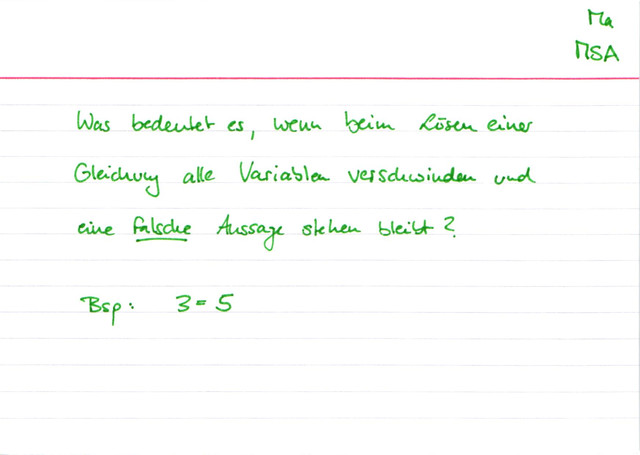 Ma
MSA
Was bedeutet es, wenn beim Lösen einer
Gleichung alle Variablen verschwinden und
eine falsche Aussage stehen bleibt?
Bsp: 3 = 5